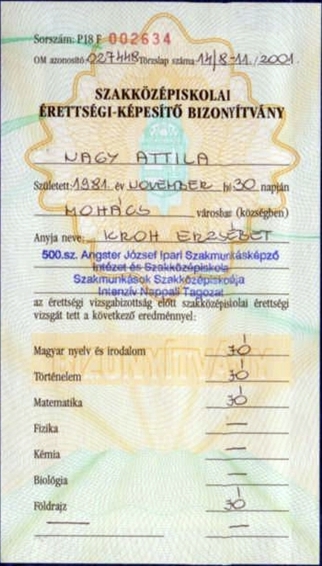 Sorszám: P18 F 002634
OM azonosító: 027448 Törzslap száma: 14/8-11./2001.
SZAKKÖZÉPISKOLAI
ÉRETTSÉGI-KÉPESÍTŐ BIZONYÍTVÁNY
NAGY ATTILA
Született: 1981. év NOVEMBER hó 30 napján
MOHÁCS városban (községben)
Anyja neve: KROH ERZSÉBET
500.sz. Angster József Ipari Szakmunkásképző
Intézet és Szakközépiskola
Szakmunkások Szakközépiskolája
Intenzív Nappali Tagozat
az érettségi vizsgabizottság előtt szakközépiskolai érettségi
vizsgát tett a következő eredménnyel:
Magyar nyelv és irodalom jó
Történelem jó
Matematika jó
Fizika —
Kémia —
Biológia —
Földrajz jó
— —